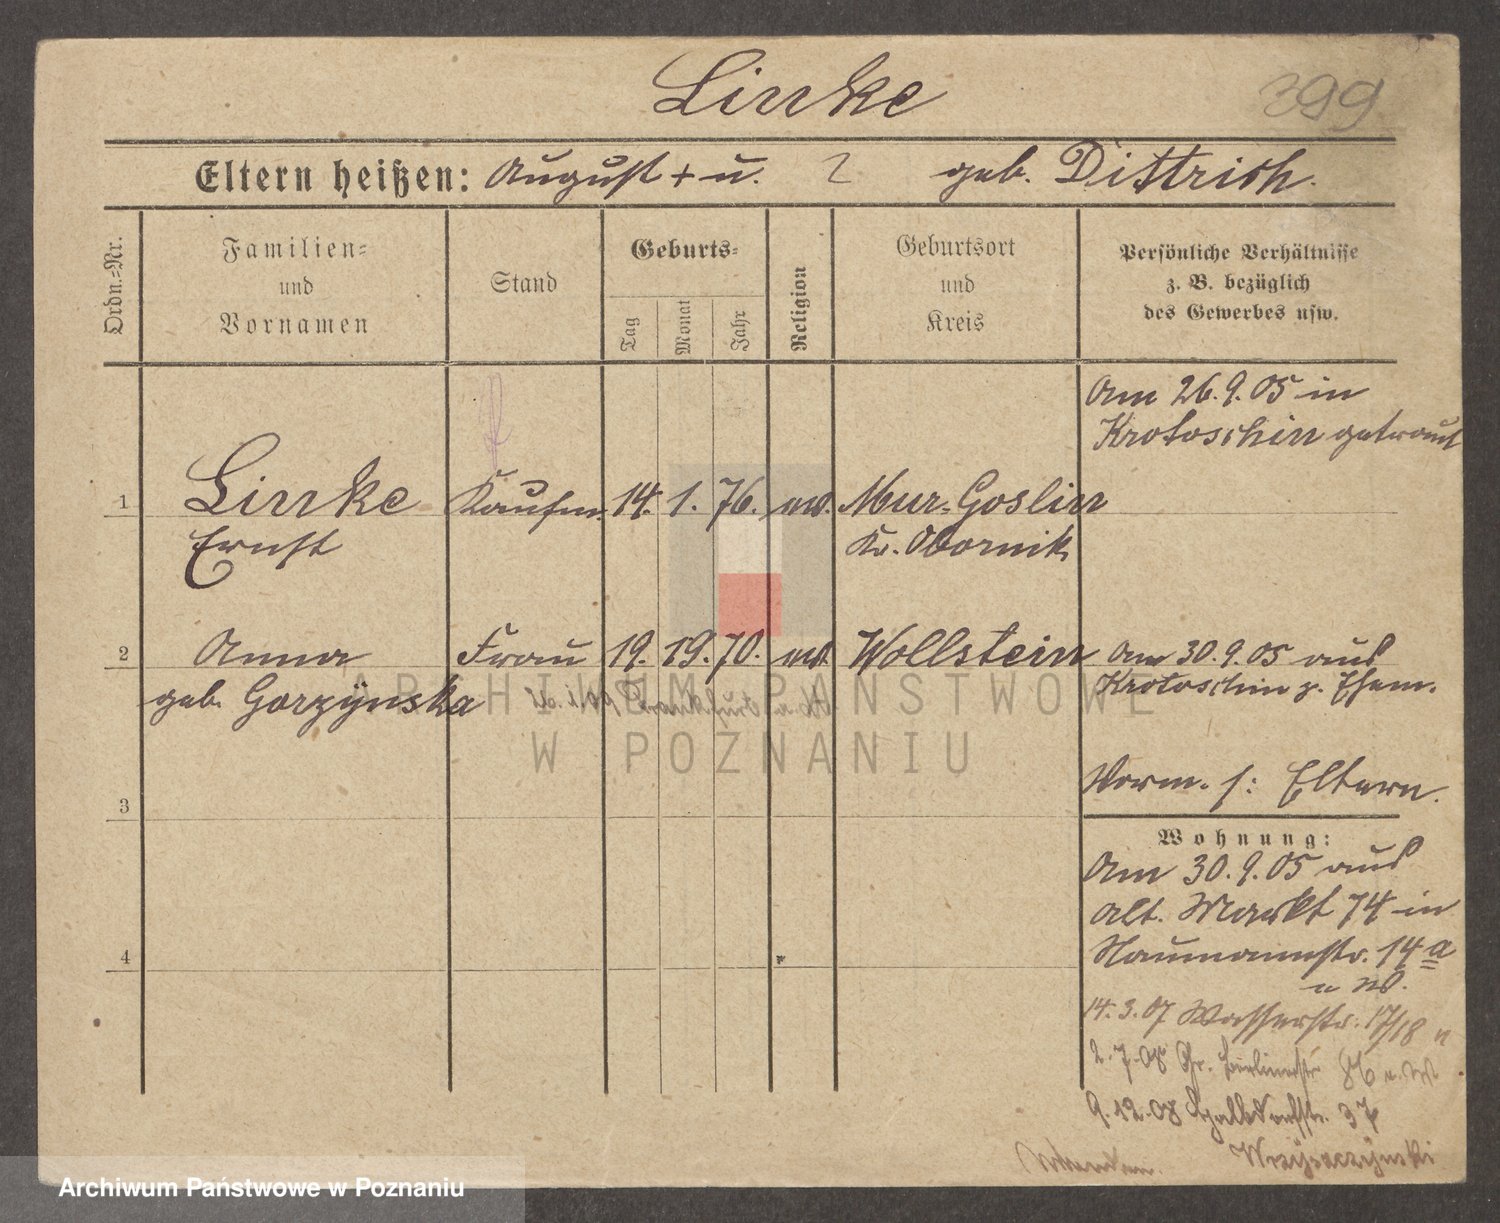 Linke
399
Eltern heißen: August + u. ? geb. Dittrich.
Ordn.=Nr.
Familien=
und
Vornamen
Stand
Geburts=
Tag
Monat
Jahr
Religion
Geburtsort
und
Kreis
Persönliche Verhältnisse
z. B. bezüglich
des Gewerbes usw.
Am 26.9.05 in
Krotoschin getraut
1 Linke Kaufm. 14. 1. 76. Mur. Goslin
Ernst Kr. Obornik
2 Anna Frau 19. 70. Wollstein Am 30.9.05 aus
geb. Gorzynska Krotoschin z. Ehem.
Vorm. s: Eltern.
3
Wohnung:
Am 30.9.05 aus
Alt. Markt 74 in
Naumannstr. 14a
4
14.3.07 Wasserstr. 17/18
2.7.08 Gr. Berlinerstr.
9.12.08 Halbdorfstr. 37
ARCHIWUM PAŃSTWOWE
W POZNANIU
Archiwum Państwowe w Poznaniu